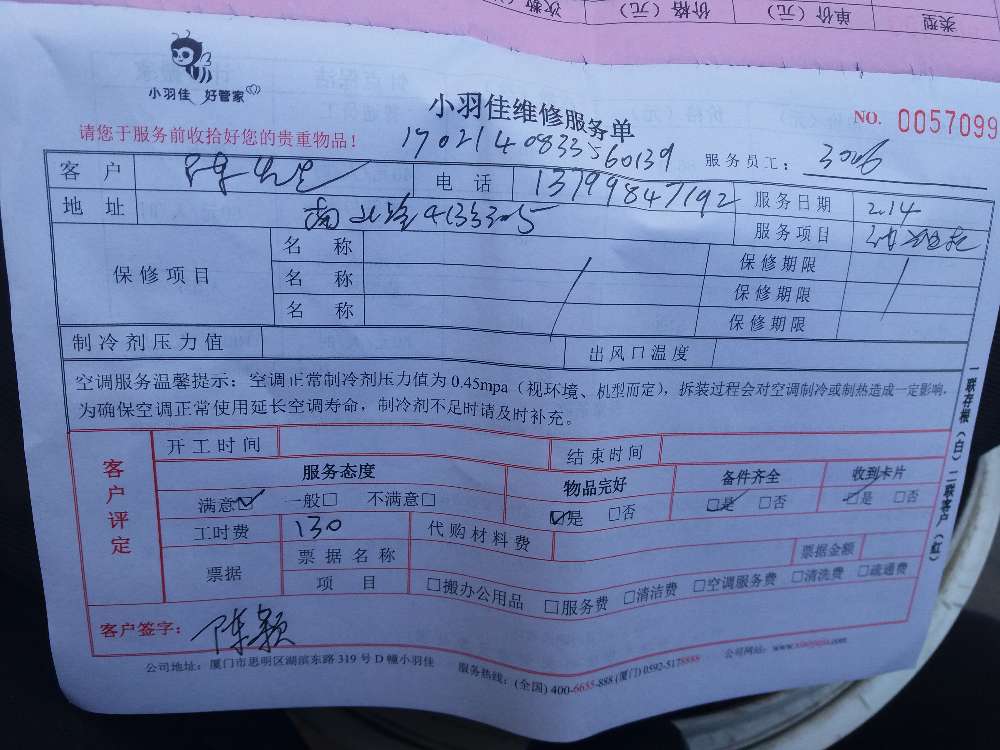 次数 价格（元） 单价（元） 类型
小羽佳 好管家
小羽佳维修服务单
NO. 0057099
请您于服务前收拾好您的贵重物品！
1702140833560139
服务员工：3026
客户 陈先生 电话 13799847192 服务日期 2.14
地址 服务项目
保修项目 名称 保修期限
名称 保修期限
名称 保修期限
制冷剂压力值 出风口温度
空调服务温馨提示：空调正常制冷剂压力值为 0.45mpa（视环境、机型而定），拆装过程会对空调制冷或制热造成一定影响，
为确保空调正常使用延长空调寿命，制冷剂不足时请及时补充。
客户评定
开工时间 结束时间
服务态度 物品完好 备件齐全 收到卡片
满意☑ 一般□ 不满意□ ☑是 □否 ☑是 □否 ☑是 □否
工时费 130 代购材料费
票据 票据名称 票据金额
项目 □搬办公用品 □服务费 □清洁费 □空调服务费 □清洗费 □疏通费
客户签字：陈颖
公司地址：厦门市思明区湖滨东路 319 号 D 幢小羽佳 服务热线：(全国) 400-6655-888 (厦门) 0592-5178888 公司网站：www.xiaoyujia.com
一联存根（白）二联客户（红）